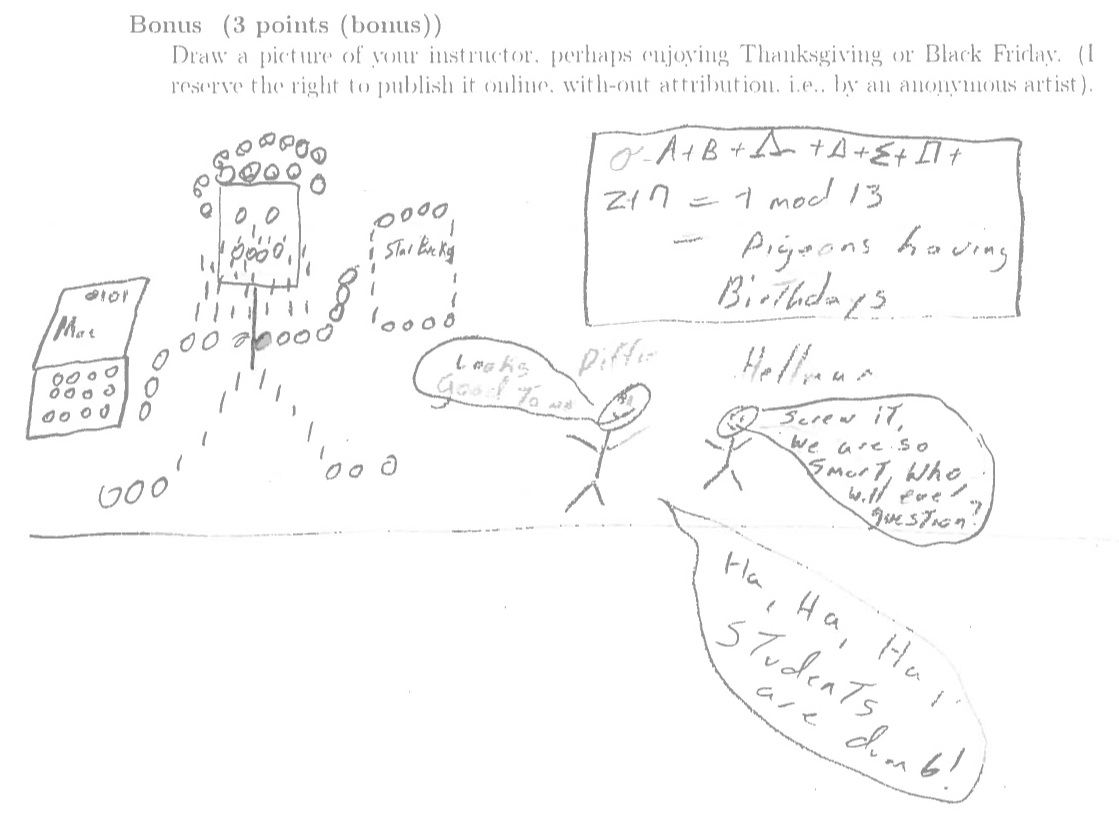 Bonus (3 points (bonus))
Draw a picture of your instructor, perhaps enjoying Thanksgiving or Black Friday. (I
reserve the right to publish it online, with-out attribution, i.e., by an anonymous artist).
A+B+
+Δ+Σ+Π+
mod 13
- Pigeons having
Birthdays
Star Bucks
0101
Mac
Looks
Good To me
Diffie
Hellman
Screw iT,
we are so
SmarT, Who
will ever
quesTion?
Ha, Ha, Ha,
STudenTs
are dumb!